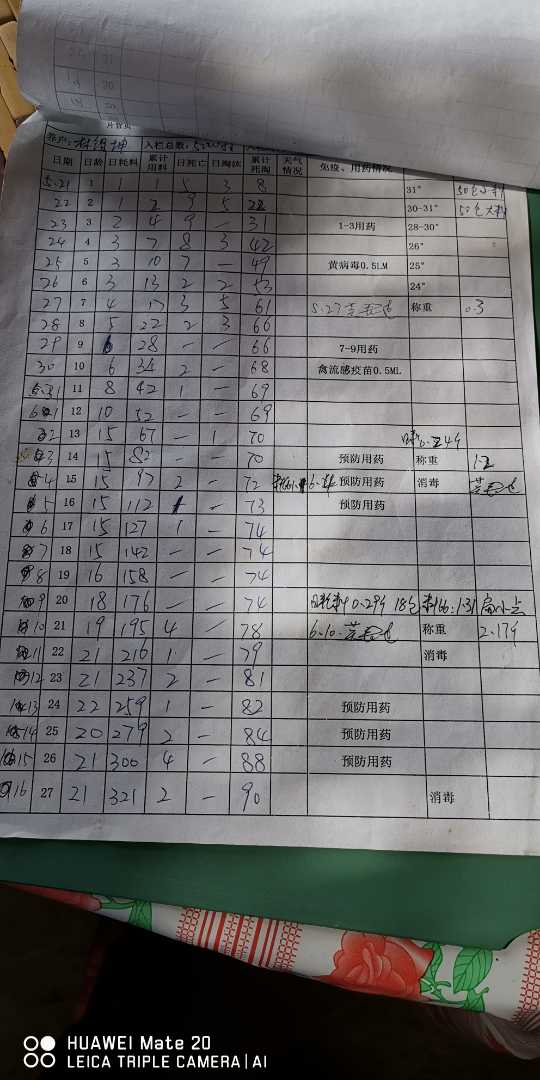 21
20
养户: 入栏总数:
日期 日龄 日耗料 累计用料 日死亡 日淘汰 累计死淘 天气情况 免疫、用药情况
5.21 1 1 1 5 3 8 31°
22 2 1 2 9 5 22 30-31°
23 3 2 4 9 — 31 1-3用药 28-30°
24 4 3 7 8 3 42 26°
25 5 3 10 7 — 49 黄病毒0.5LM 25°
26 6 3 13 2 2 53 24°
27 7 4 17 3 5 61 5.27 称重 0.3
28 8 5 22 2 3 66
29 9 6 28 — — 66 7-9用药
30 10 6 34 2 — 68 禽流感疫苗0.5ML
31 11 8 42 1 — 69
6.1 12 10 52 — — 69
2 13 15 67 — 1 70
3 14 15 82 — — 70 预防用药 称重 1.2
4 15 15 97 2 — 72 预防用药 消毒
5 16 15 112 1 — 73 预防用药
6 17 15 127 1 — 74
7 18 15 142 — — 74
8 19 16 158 — — 74
9 20 18 176 — — 74 0.29斤 18包 1.31
10 21 19 195 4 — 78 6.10. 称重 2.17斤
11 22 21 216 1 — 79 消毒
12 23 21 237 2 — 81
13 24 22 259 1 — 82 预防用药
14 25 20 279 2 — 84 预防用药
15 26 21 300 4 — 88 预防用药
16 27 21 321 2 — 90 消毒
HUAWEI Mate 20
LEICA TRIPLE CAMERA | AI